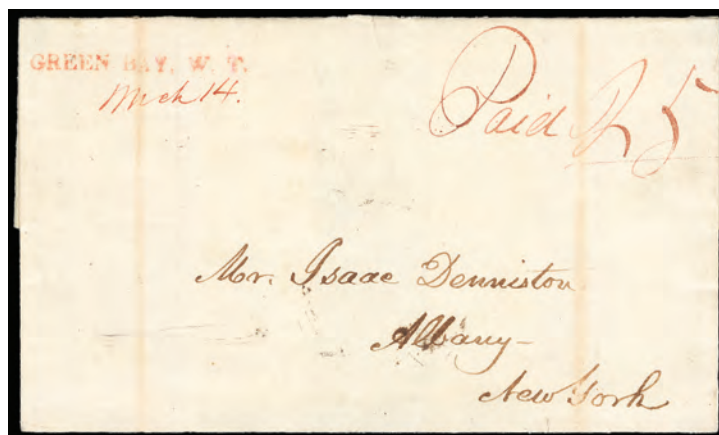 GREEN BAY, W. T.
Mch 14.
Paid 25
Mr. Isaac Denniston
Albany-
New York